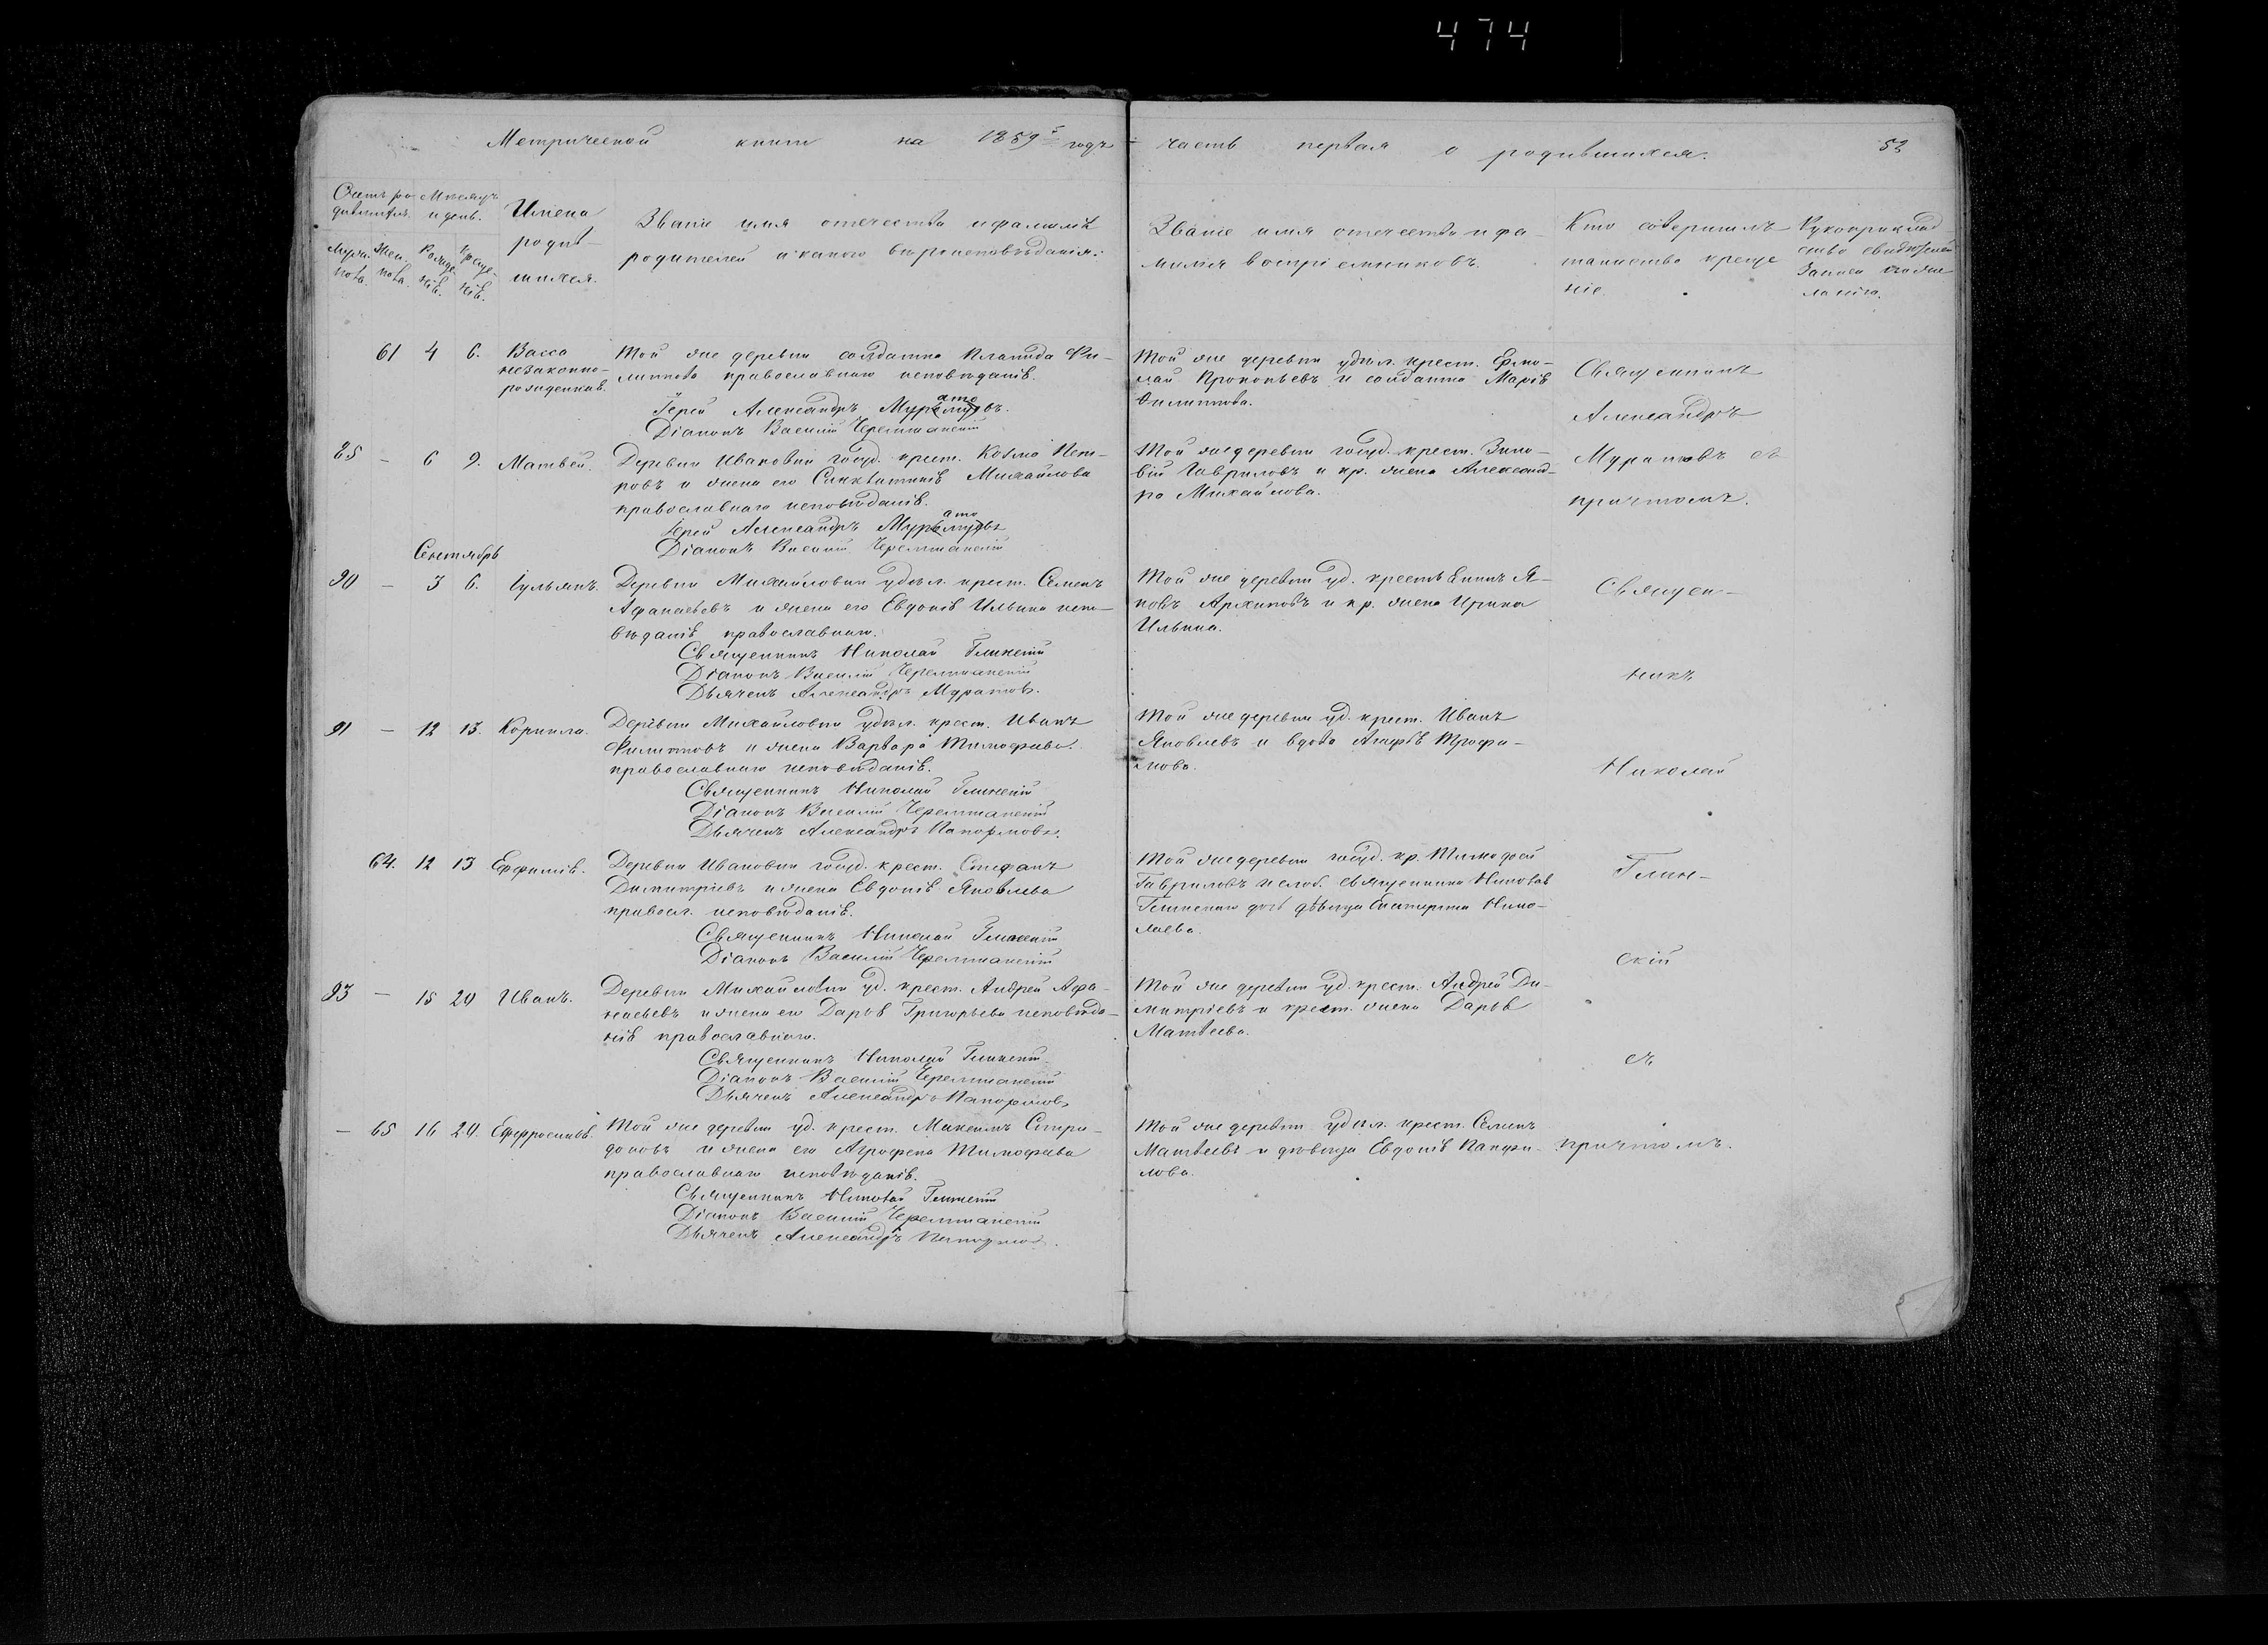 474
Метрической книги на 1859й годъ часть первая о родившихся. 53
Счетъ родившихся.
Мужеска пола. Женска пола.
Мѣсяцъ и день.
Рожденія. Крещенія.
Имена родившихся.
Званіе имя отечество и фамилія
родителей и какого вѣроисповѣданія:
Званіе имя отечество и фа-
милія воспріемниковъ.
Кто совершилъ
таинство креще
ніе.
Рукоприклад
ство свидѣтелей
записи по же
ланію.
61 4 6. Васса
незаконно-
рожденная.
Той же деревни солдатка Фи-
липпова православнаго исповѣданія.
Іерей Александръ Муратовъ.
Діаконъ Василій Черемшанскій
Той же деревни удѣл. крест. Ермо-
лай Прокопьевъ и солдатка Марія
Филиппова.
Священникъ
Александръ
Муратовъ съ
причтомъ.
85 – 6 9. Матвей.
Деревни Ивановки госуд. крест. Козма Пет-
ровъ и жена его Синклитикія Михайлова
православнаго исповѣданія.
Іерей Александръ Муратовъ
Діаконъ Василій Черемшанскій
Той же деревни госуд. крест. Зино-
вій Гавриловъ и кр. жена Александ-
ра Михайлова.
Сентябрь
90 – 3 6. Іульянъ.
Деревни Михайловки удѣл. крест. Семенъ
Афанасьевъ и жена его Евдокія Ильина испо-
вѣданія православнаго.
Священникъ Николай Глинскій
Діаконъ Василій Черемшанскій
Дьячекъ Александръ Муратовъ.
Той же деревни уд. крест. Я-
ковъ Архиповъ и кр. жена Ирина
Ильина.
Священ-
никъ
Николай
Глин-
скій
съ
причтомъ.
91 – 12 13. Корнила.
Деревни Михайловки удѣл. крест. Иванъ
Филипповъ и жена Варвара Тимофеева.
православнаго исповѣданія.
Священникъ Николай Глинскій
Діаконъ Василій Черемшанскій
Дьячекъ Александръ
Той же деревни уд. крест. Иванъ
Яковлевъ и вдова Агафія Трофи-
мова.
64. 12 13 Евфимія.
Деревни Ивановки госуд. крест. Стефанъ
Димитріевъ и жена Евдокія Яковлева
правосл. исповѣданія.
Священникъ Николай Глинскій
Діаконъ Василій Черемшанскій
Той же деревни госуд. кр. Тимофей
Гавриловъ и слоб. священника Николая
Глинскаго дочь дѣвица Екатерина Нико-
лаева.
93 – 15 24 Иванъ.
Деревни Михайловки уд. крест. Андрей Афа-
насьевъ и жена его Дарья Григорьева исповѣда-
нія православнаго.
Священникъ Николай Глинскій
Діаконъ Василій Черемшанскій
Дьячекъ Александръ
Той же деревни уд. крест. Андрей Ди-
митріевъ и крест. жена Дарья
Матвеева.
– 65 16 24. Евфросинія.
Той же деревни уд. крест. Максимъ Спири-
доновъ и жена его Агрофена Тимофеева
православнаго исповѣданія.
Священникъ Николай Глинскій
Діаконъ Василій Черемшанскій
Дьячекъ Александръ
Той же деревни удѣл. крест. Семенъ
Матвеевъ и дѣвица Евдокія Панфи-
лова.